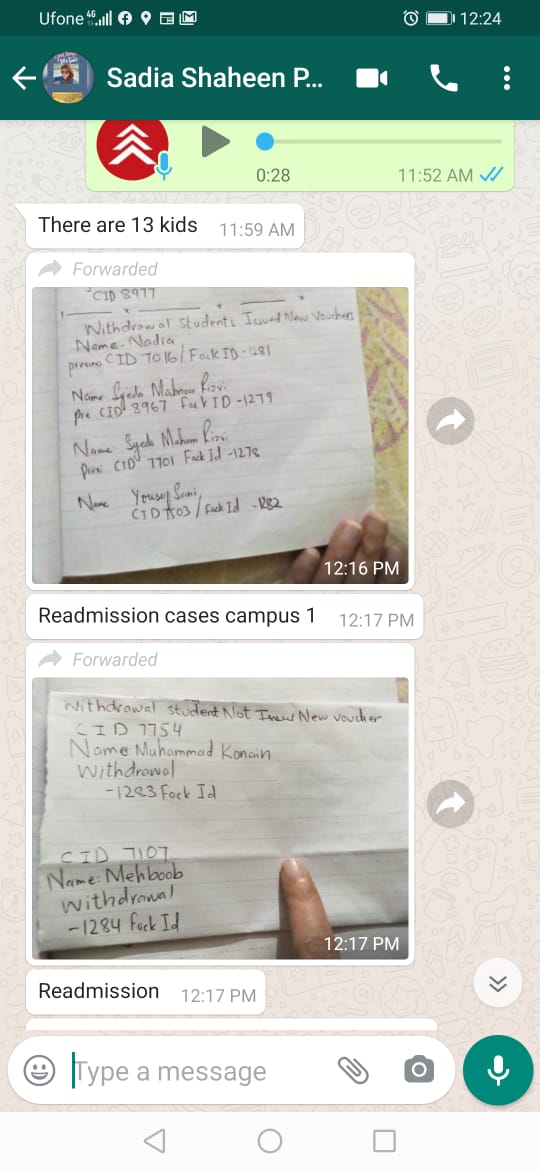 Ufone 4G 12:24
Sadia Shaheen P...
0:28 11:52 AM
There are 13 kids 11:59 AM
Forwarded
CID 8977
Withdrawal Students Issued New Vouchers
Name. Nadia
previous CID 7016/ Fack ID -1281
Name Syeda Mahnoor Rizvi
Pre CID 8967 Fack ID -1279
Name Syeda Maham Rizvi
Previ CID 7701 Fack Id -1278
Name Yousuf Sami
/ Fack Id -1282
12:16 PM
Readmission cases campus 1 12:17 PM
Forwarded
Withdrawal student Not New voucher
CID 7754
Name Muhammad Konain
Withdrawal
-1283 Fack Id
CID 7107
Name: Mehboob
withdrawal
-1284 Fack Id
12:17 PM
Readmission 12:17 PM
Type a message